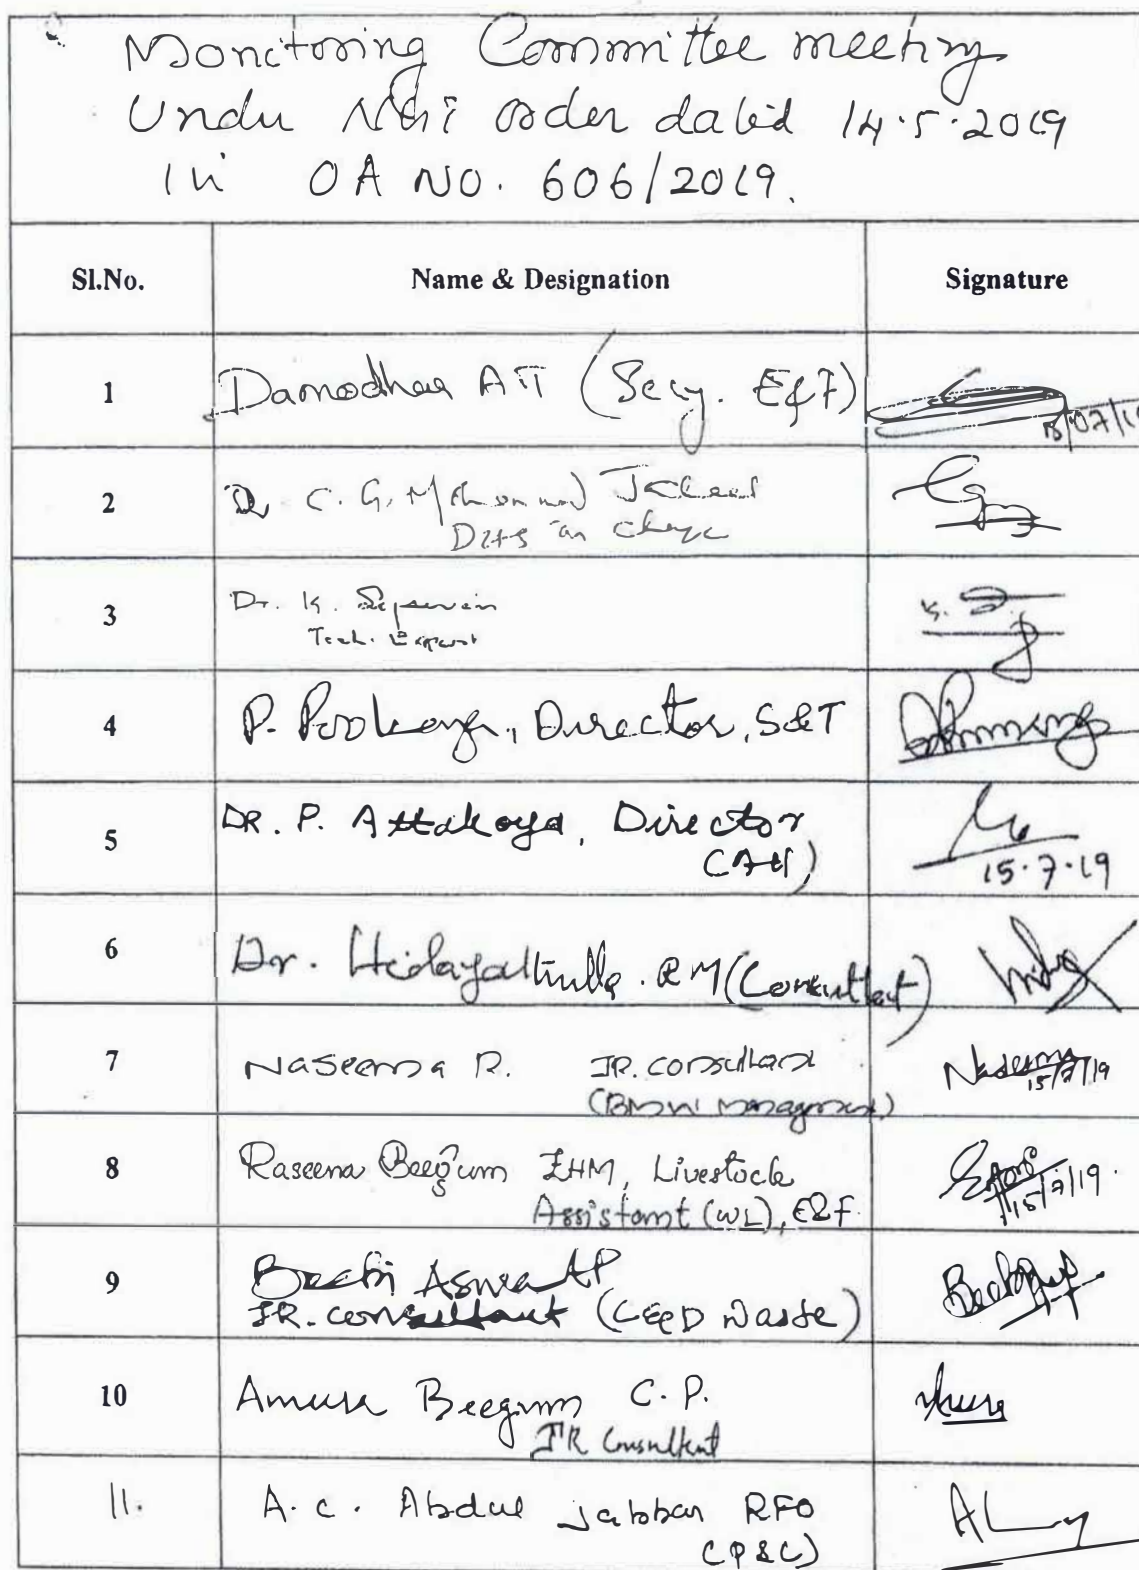 Monitoring Committee meeting
Under NGT order dated 14.5.2019
in OA NO. 606/2019.
Sl.No. Name & Designation Signature
1 Damodhar AT (Secy. E&F) 15/07/19
2 Dr C. G. Mohammad Jaleel
in charge
3 Dr. K.
Tech. Expert
4 P. Pookoya, Director, S&T
5 DR. P. Attakoya, Director
(AH) 15.7.19
6 Dr. Hidayathulla. R M (Consultant)
7 Naseema R. JR. consultant Naseema
(BMW management) 15/7/19
8 Raseena Beegum EHM, Livestock
Assistant (WL), E&F 15/7/19
9 Beebi Asma AP
JR. consultant (C&D Waste)
10 Beegum C.P.
JR Consultant
11. A.C. Abdul Jabbar RFO
(P&C)